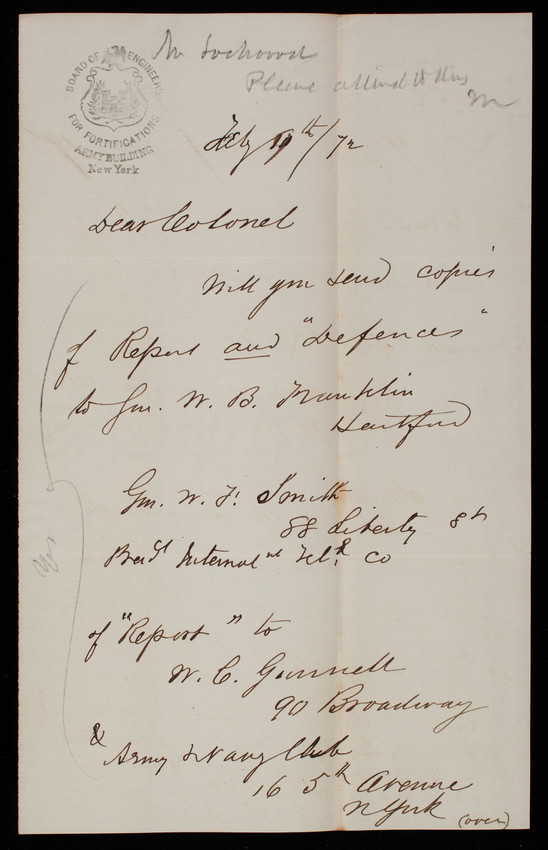 BOARD OF ENGINEERS
FOR FORTIFICATIONS
ARMY BUILDING
New York
Mr Lockwood
Please attend to this
Feby 9th/72
Dear Colonel
Will you send copies
of Report and "Defences"
to Gen. W. B. Franklin
Hartford
Gen. W. F. Smith
88 Liberty St
Presdt Internatnl Tel. Co
of "Report" to
W. C. Gunnell
90 Broadway
& Army & Navy Club
16 5th Avenue
N York
(over)
Yes